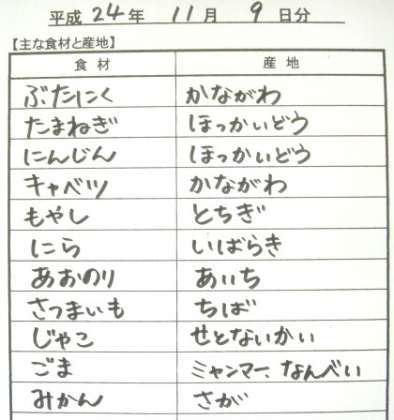 平成24年 11月 9日分
【主な食材と産地】
食材 産地
ぶたにく かながわ
たまねぎ ほっかいどう
にんじん ほっかいどう
キャベツ かながわ
もやし とちぎ
にら いばらき
あおのり あいち
さつまいも ちば
じゃこ せとないかい
ごま ミャンマー、なんべい
みかん さが